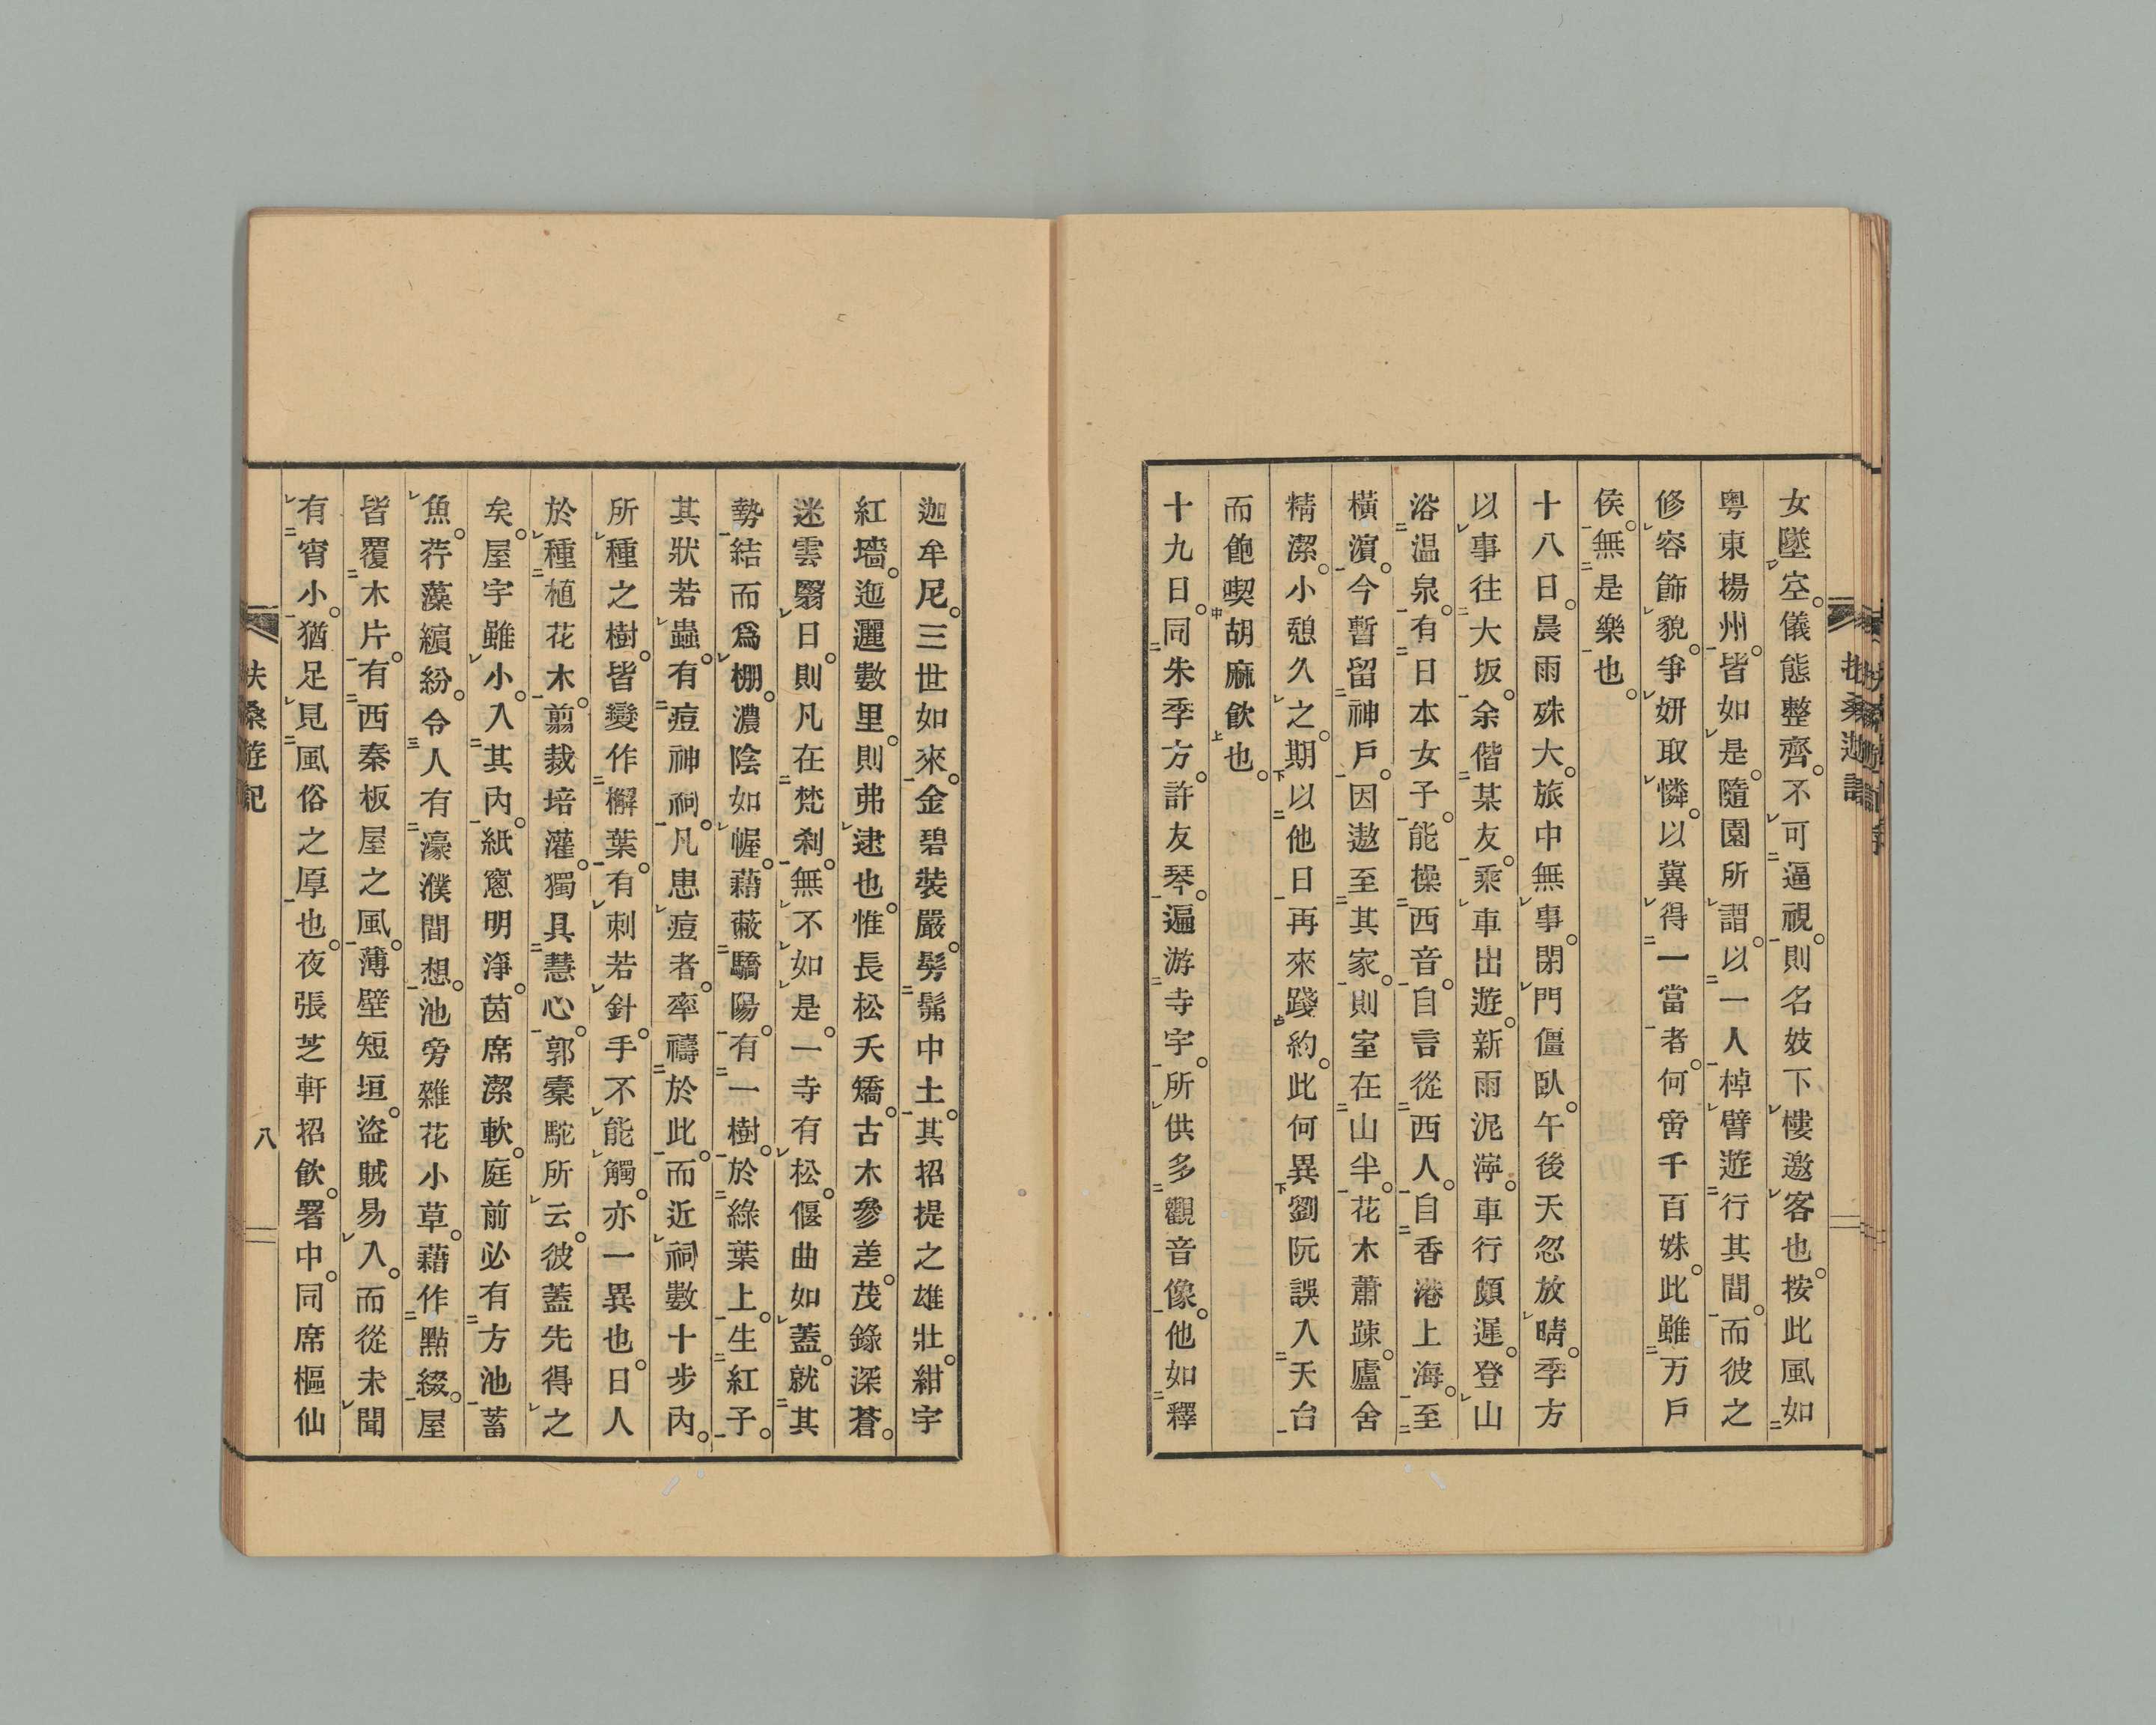 女墜空。儀態整齊。不可逼視。則名妓下樓邀客也。按此風如
粤東揚州。皆如是。隨園所謂。以一人棹臂遊行其間。而彼之
修容飾貌。爭妍取憐。以冀得一當者。何啻千百姝。此雖万戶
侯。無是樂也。
十八日。晨雨殊大。旅中無事。閉門僵臥。午後天忽放晴。季方
以事往大坂。余偕某友。乘車出遊。新雨泥濘。車行頗遲。登山
浴温泉。有日本女子。能操西音。自言從西人。自香港上海。至
橫濱。今暫留神戶。因邀至其家。則室在山半。花木蕭踈。廬舍
精潔。小憩久之。期以他日再來踐約。此何異劉阮誤入天台
而飽喫胡麻飲也。
十九日。同朱季方。許友琴。遍游寺宇。所供多觀音像。他如釋
迦牟尼。三世如來。金碧裝嚴。髣髴中土。其招提之雄壯。紺宇
紅墻。迤邐數里。則弗逮也。惟長松夭矯。古木參差。茂錄深蒼。
迷雲翳日。則凡在梵刹。無不如是。一寺有松。偃曲如蓋。就其
勢結而爲棚。濃陰如幄。藉蔽驕陽。有一樹。於綠葉上。生紅子。
其狀若蟲。有痘神祠。凡患痘者。率禱於此。而近祠數十步內。
所種之樹。皆變作檞葉。有刺若針。手不能觸。亦一異也。日人
於種植花木。翦裁培灌。獨具慧心。郭槖駝所云。彼蓋先得之
矣。屋宇雖小。入其內。紙窻明淨。茵席潔軟。庭前必有方池。蓄
魚。荇藻繽紛。令人有濠濮間想。池旁雜花小草。藉作點綴。屋
皆覆木片。有西秦板屋之風。薄壁短垣。盜賊易入。而從未聞
有宵小。猶足見風俗之厚也。夜張芝軒招飮。署中。同席樞仙
扶桑遊記
八